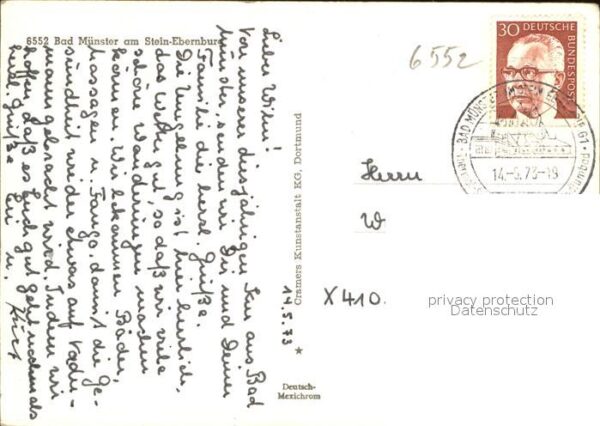 6552 Bad Münster am Stein-Ebernburg
6552
30 DEUTSCHE
BUNDESPOST
BAD MÜNSTER AM STEIN EBERNBURG 1
14.-5.73-19
14.5.73
Lieber Willi!
Von unserer diesjährigen Kur aus Bad
Münster, senden wir Dir und Deiner
Familie die herzl. Grüße.
Die Umgebung ist hier herrlich,
das Wetter gut, so daß wir viele
schöne Wanderungen machen
können. Wir bekommen Bäder,
Massagen u. Fango, damit die Ge-
sundheit wieder etwas auf Vorder-
mann gebracht wird. Indem wir
hoffen, daß es Euch gut geht nochmals
herzl. Grüße
u.
Cramers Kunstanstalt KG, Dortmund
★
Deutsch-
Mexichrom
Herrn
W
X410.
privacy protection
Datenschutz